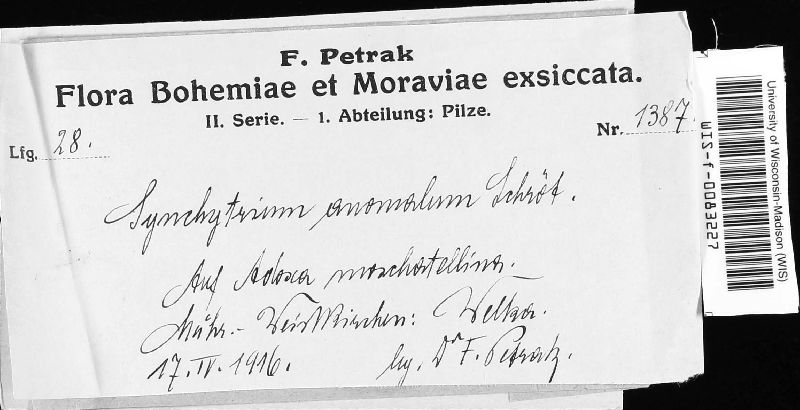 F. Petrak
Flora Bohemiae et Moraviae exsiccata.
II. Serie. — 1. Abteilung: Pilze.
Lfg. 28.
Nr. 1387.
Synchytrium anomalum Schröt.
Auf Adoxa moschatellina.
Mähr.-Weisskirchen: Welka.
17. IV. 1916.
leg. Dr F. Petrak.
University of Wisconsin-Madison (WIS)
WIS-f-0083227